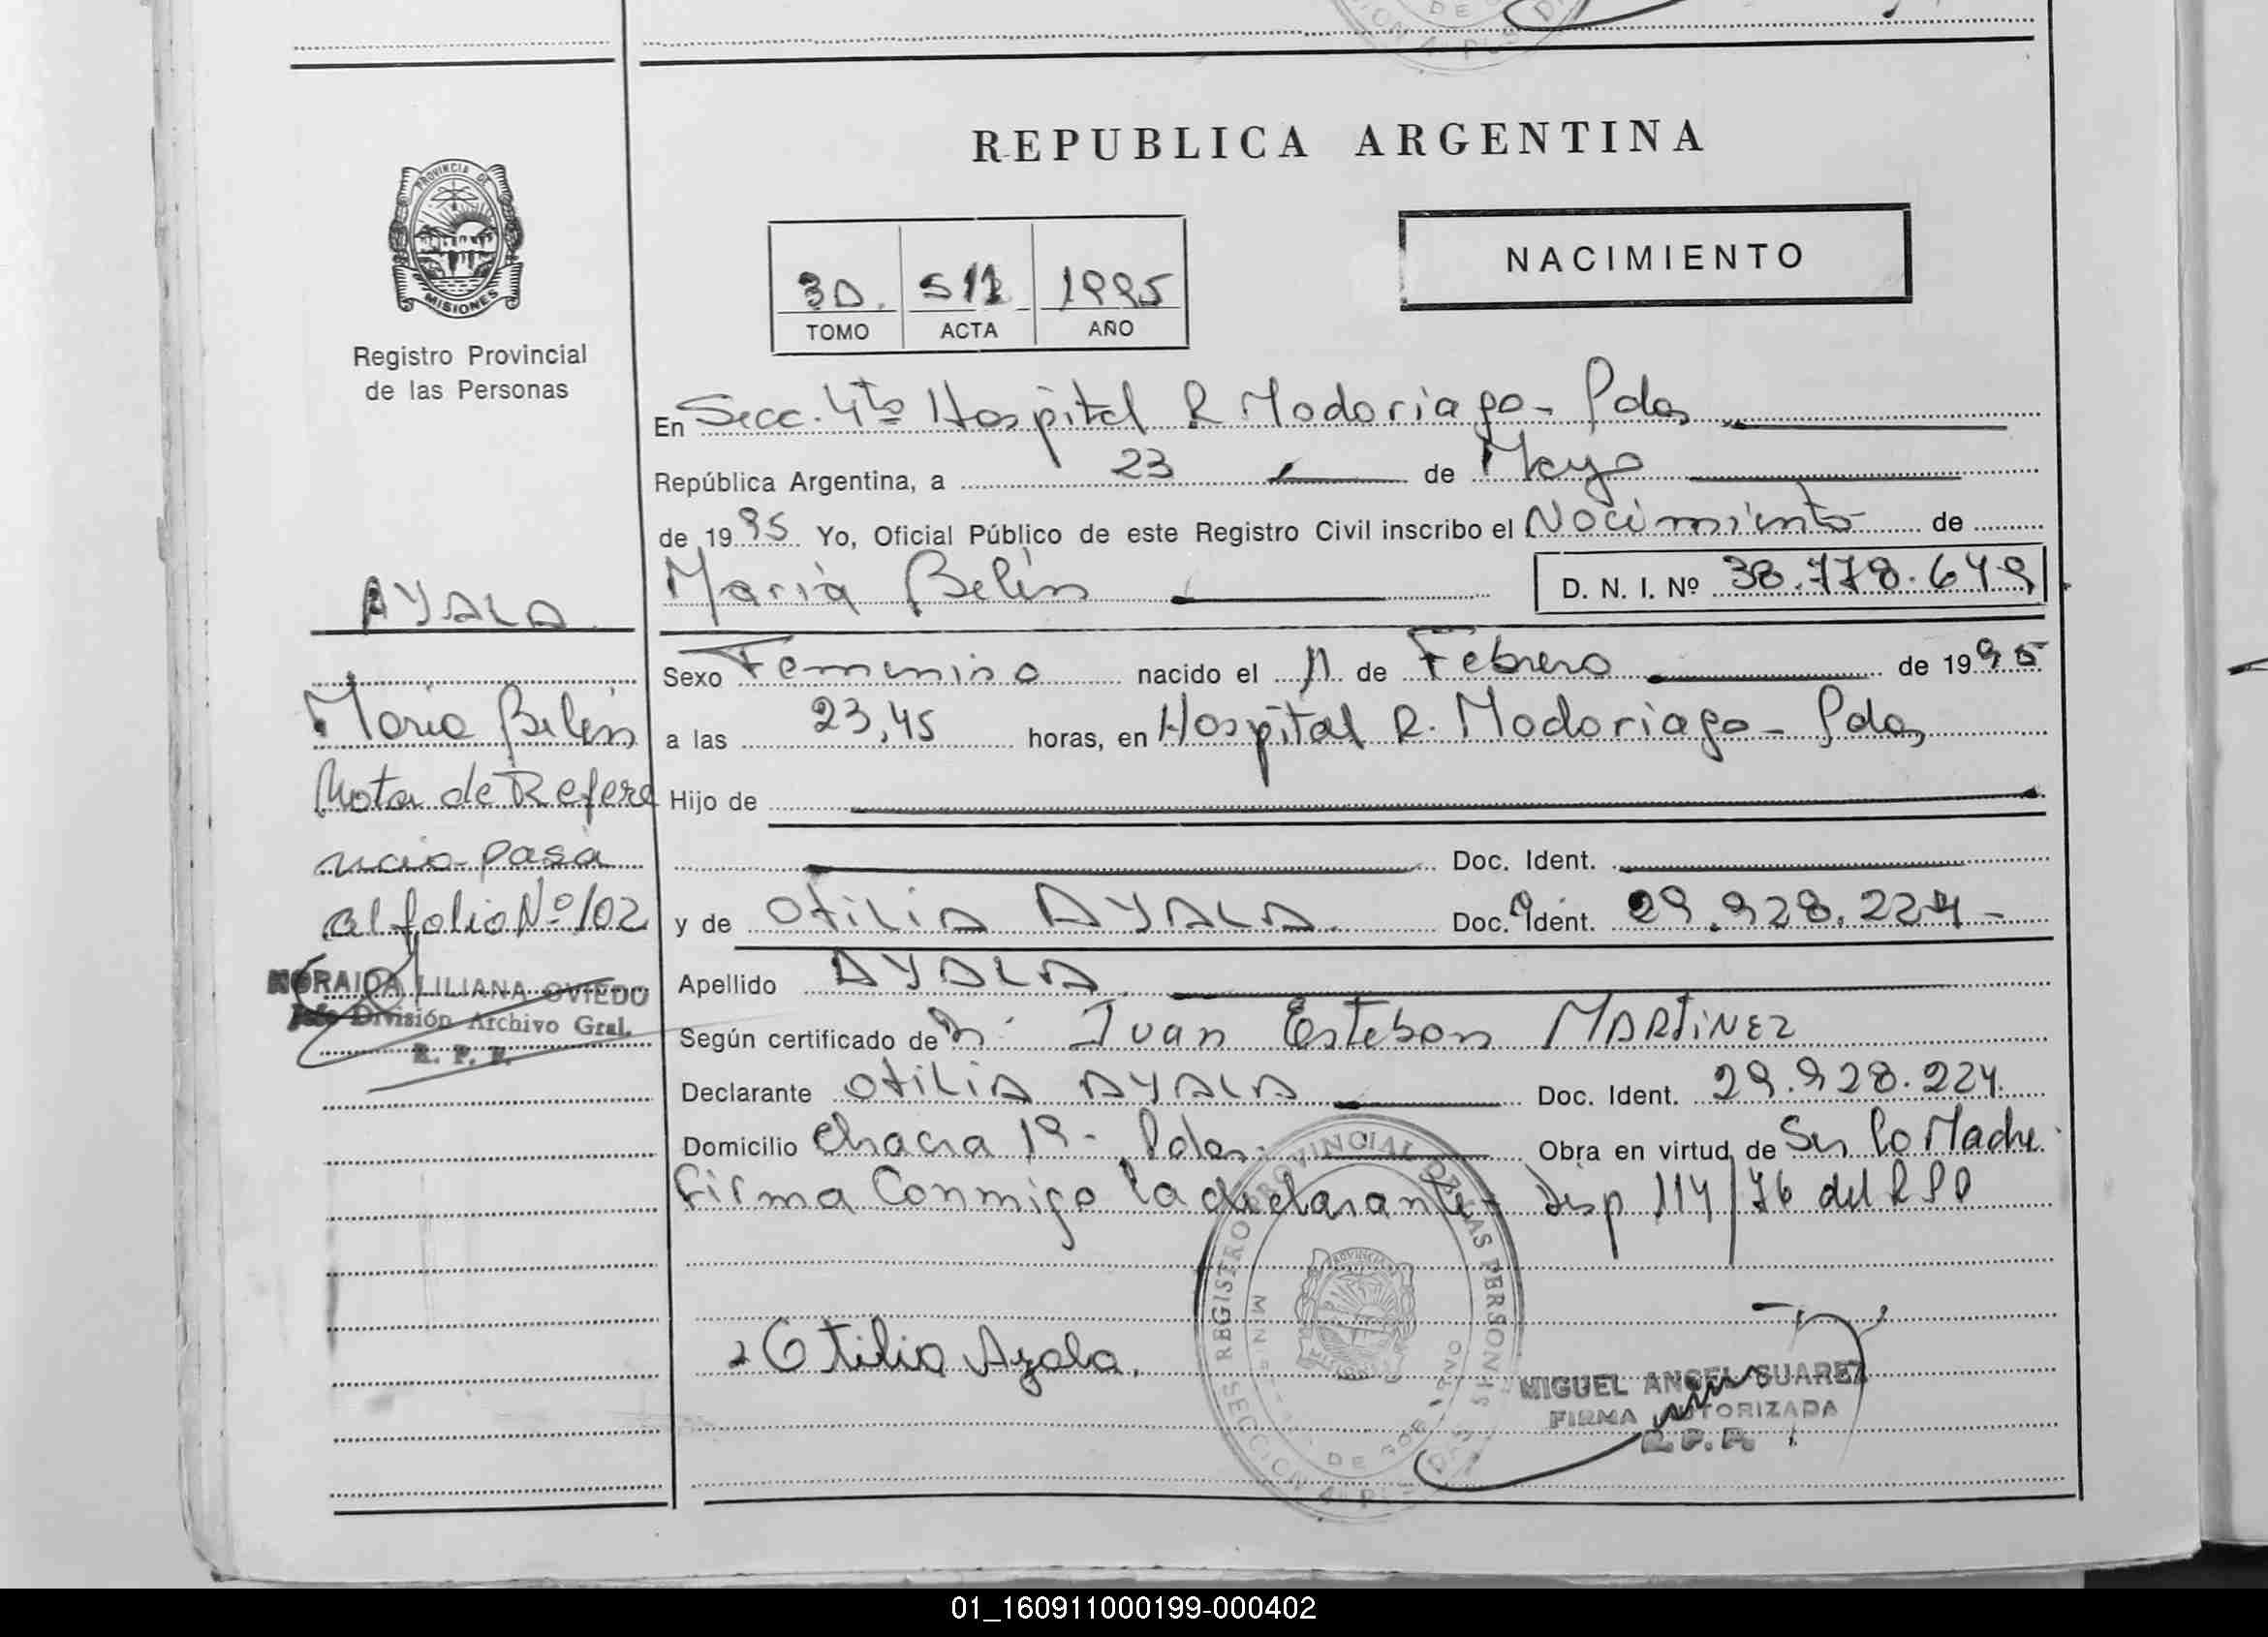 REPUBLICA ARGENTINA
PROVINCIA DE
MISIONES
Registro Provincial
de las Personas
NACIMIENTO
30. 511 1995
TOMO ACTA AÑO
En Secc. 4ta Hospital R. Madariaga - Pdas
República Argentina, a 23 de Mayo
de 1995 Yo, Oficial Público de este Registro Civil inscribo el Nacimiento de
María Belén D. N. I. Nº 38.778.649
AYALA
María Belén
Nota de Refere
ncia pasa
al folio Nº 102
NORAIDA LILIANA OVIEDO
Jefe División Archivo Gral.
R. P. P.
Sexo Femenino nacido el 11 de Febrero de 1995
a las 23,45 horas, en Hospital R. Madariaga - Pdas
Hijo de
Doc. Ident.
y de Otilia AYALA. Doc. Ident. 29.928.224 -
Apellido AYALA
Según certificado de Dr. Juan Esteban MARTINEZ
Declarante Otilia AYALA Doc. Ident. 29.928.224.
Domicilio Chacra 19 - Pdas. Obra en virtud de Ser la Madre.
Firma Conmigo la declarante - Disp 114/76 del RPP
REGISTRO PROVINCIAL DE LAS PERSONAS
Otilia Ayala.
MIGUEL ANGEL SUAREZ
FIRMA AUTORIZADA
R. P. P.
01_160911000199-000402